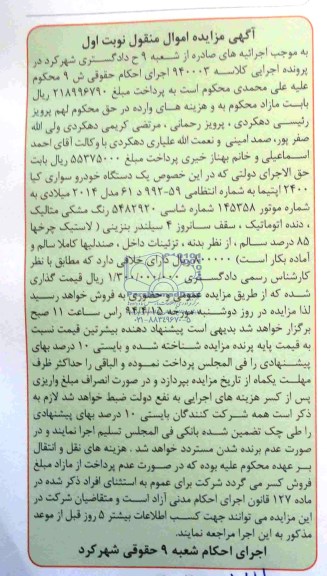 آگهی مزایده اموال منقول نوبت اول
به موجب اجرائیه های صادره از شعبه ۹ ح دادگستری شهرکرد در
پرونده اجرایی کلاسه ۹۴۰۰۰۳ اجرای احکام حقوقی ش ۹ محکوم
علیه علی محمدی محکوم است به پرداخت مبلغ ۲۱۸۹۹۶۷۹۰ ریال
بابت مازاد محکوم به و هزینه های وارده در حق محکوم لهم پرویز
رئیسی دهکردی ، پرویز رحمانی ، مرتضی کریمی دهکردی ولی الله
صفرپور، صمد امینی و نعمت الله علیاری دهکردی با وکالت آقای احمد
اسماعیلی و خانم بهناز خیری پرداخت مبلغ ۵۵۳۷۵۰۰۰ ریال بابت
حق الاجرای دولتی که در این خصوص یک دستگاه خودرو سواری کیا
۲۴۰۰ اپتیما به شماره انتظامی ۵۹-۹۹۲ د ۶۱ مدل ۲۰۱۴ میلادی به
شماره موتور ۱۴۵۳۵۸ شماره شاسی ۵۴۸۲۹۲۰ رنگ مشکی متالیک
، دنده اتوماتیک ، سقف سانروز ۴ سیلندر بنزینی ( لاستیک چرخها
۸۵ درصد سالم ، از نظر بدنه ، تزئینات داخل ، صندلیها کاملا سالم و
آماده بکار است) ۸۰۰۰۰۰ ریال دارای خلافی دارد که مطابق با نظر
کارشناس رسمی دادگستری ۱/۳۰۰/۰۰۰/۰۰۰ ریال قیمت گذاری
شده که از طریق مزایده عمومی و حضوری به فروش خواهد رسید
لذا مزایده در روز دوشنبه مورخه ۹۴/۴/۱۵ راس ساعت ۱۱ صبح
برگزار خواهد شد بدیهی است پیشنهاد دهنده بیشترین قیمت نسبت
به قیمت پایه برنده مزایده شناخته شده و بایستی ۱۰ درصد بهای
پیشنهادی را فی المجلس پرداخت نموده و الباقی را حداکثر ظرف
مهلت یکماه از تاریخ مزایده بپردازد و در صورت انصراف مبلغ واریزی
پس از کسر هزینه های اجرایی به نفع دولت ضبط خواهد شد لازم به
ذکر است همه شرکت کنندگان بایستی ۱۰ درصد بهای پیشنهادی
را طی چک تضمین شده بانکی فی المجلس تسلیم اجرا نمایند و در
صورت عدم برنده شدن مسترد خواهد شد . هزینه های نقل و انتقال
بر عهده محکوم علیه بوده که در صورت عدم پرداخت از مازاد مبلغ
فروش کسر می گردد شرکت برای عموم به استثنای افراد ذکر شده در
ماده ۱۲۷ قانون اجرای احکام مدنی آزاد است و متقاضیان شرکت در
این مزایده می توانند جهت کسب اطلاعات بیشتر ۵ روز قبل از موعد
مذکور به این اجرا مراجعه نمایند.
اجرای احکام شعبه ۹ حقوقی شهرکرد